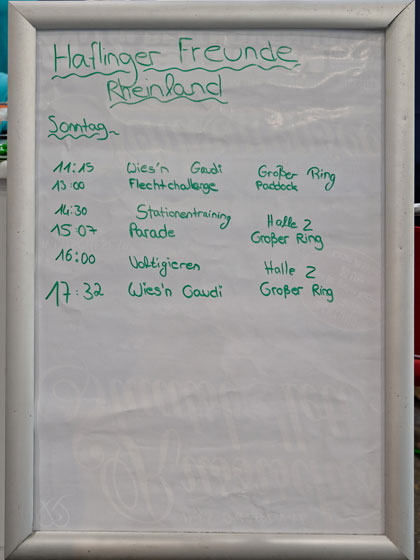 Haflinger Freunde
Rheinland
Sonntag
11:15 Wies'n Gaudi Großer Ring
13:00 Flechtchallenge Paddock
14:30 Stationentraining Halle 2
15:07 Parade Großer Ring
16:00 Voltigieren Halle 2
17:32 Wies'n Gaudi Großer Ring